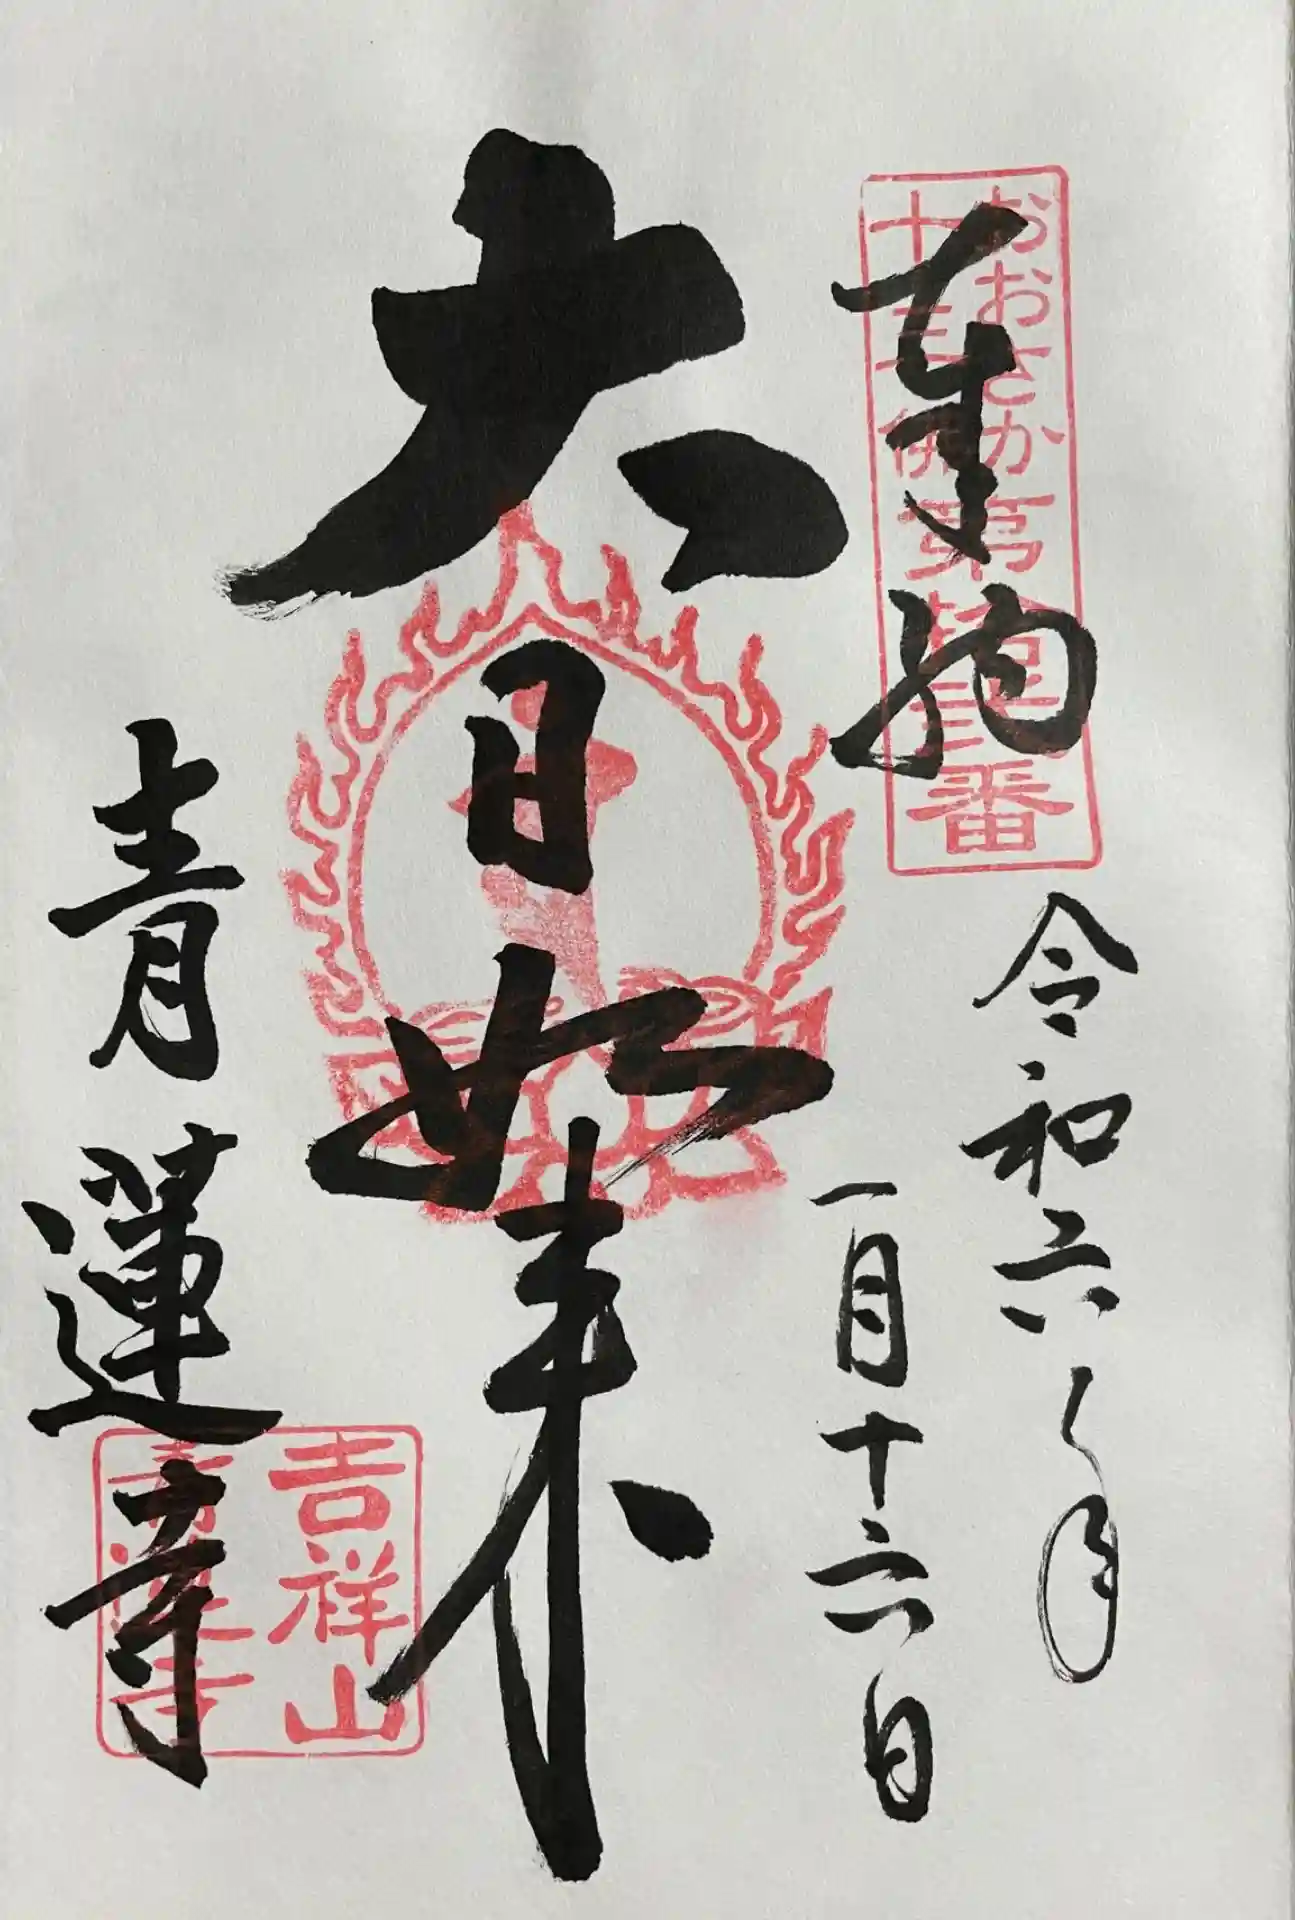 奉拝
おおさか
十三佛第拾三番
令和六年
一月十六日
大日如来
青蓮寺
吉祥山
青蓮寺